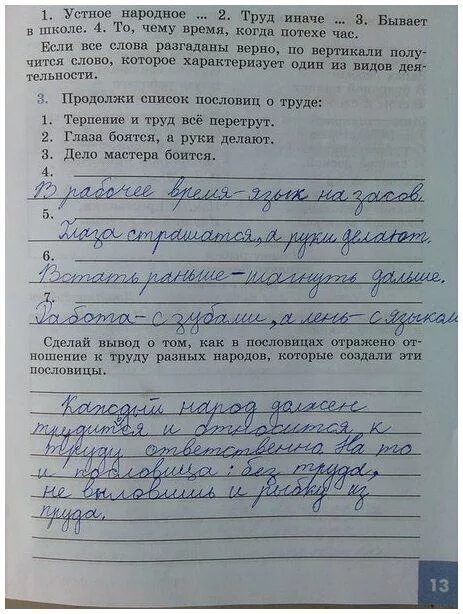 1. Устное народное ... 2. Труд иначе ... 3. Бывает
в школе. 4. То, чему время, когда потехе час.
Если все слова разгаданы верно, по вертикали полу-
чится слово, которое характеризует один из видов дея-
тельности.
3. Продолжи список пословиц о труде:
1. Терпение и труд всё перетрут.
2. Глаза боятся, а руки делают.
3. Дело мастера боится.
4.
В рабочее время – язык на засов.
5.
Глаза страшатся, а руки делают.
6.
Встать раньше – шагнуть дальше.
7.
Работа – с зубами, а лень – с языком
Сделай вывод о том, как в пословицах отражено от-
ношение к труду разных народов, которые создали эти
пословицы.
Каждый народ должен
трудится и относится к
труду ответственно. На то
и пословица: без труда,
не выловишь и рыбку из
пруда.
13